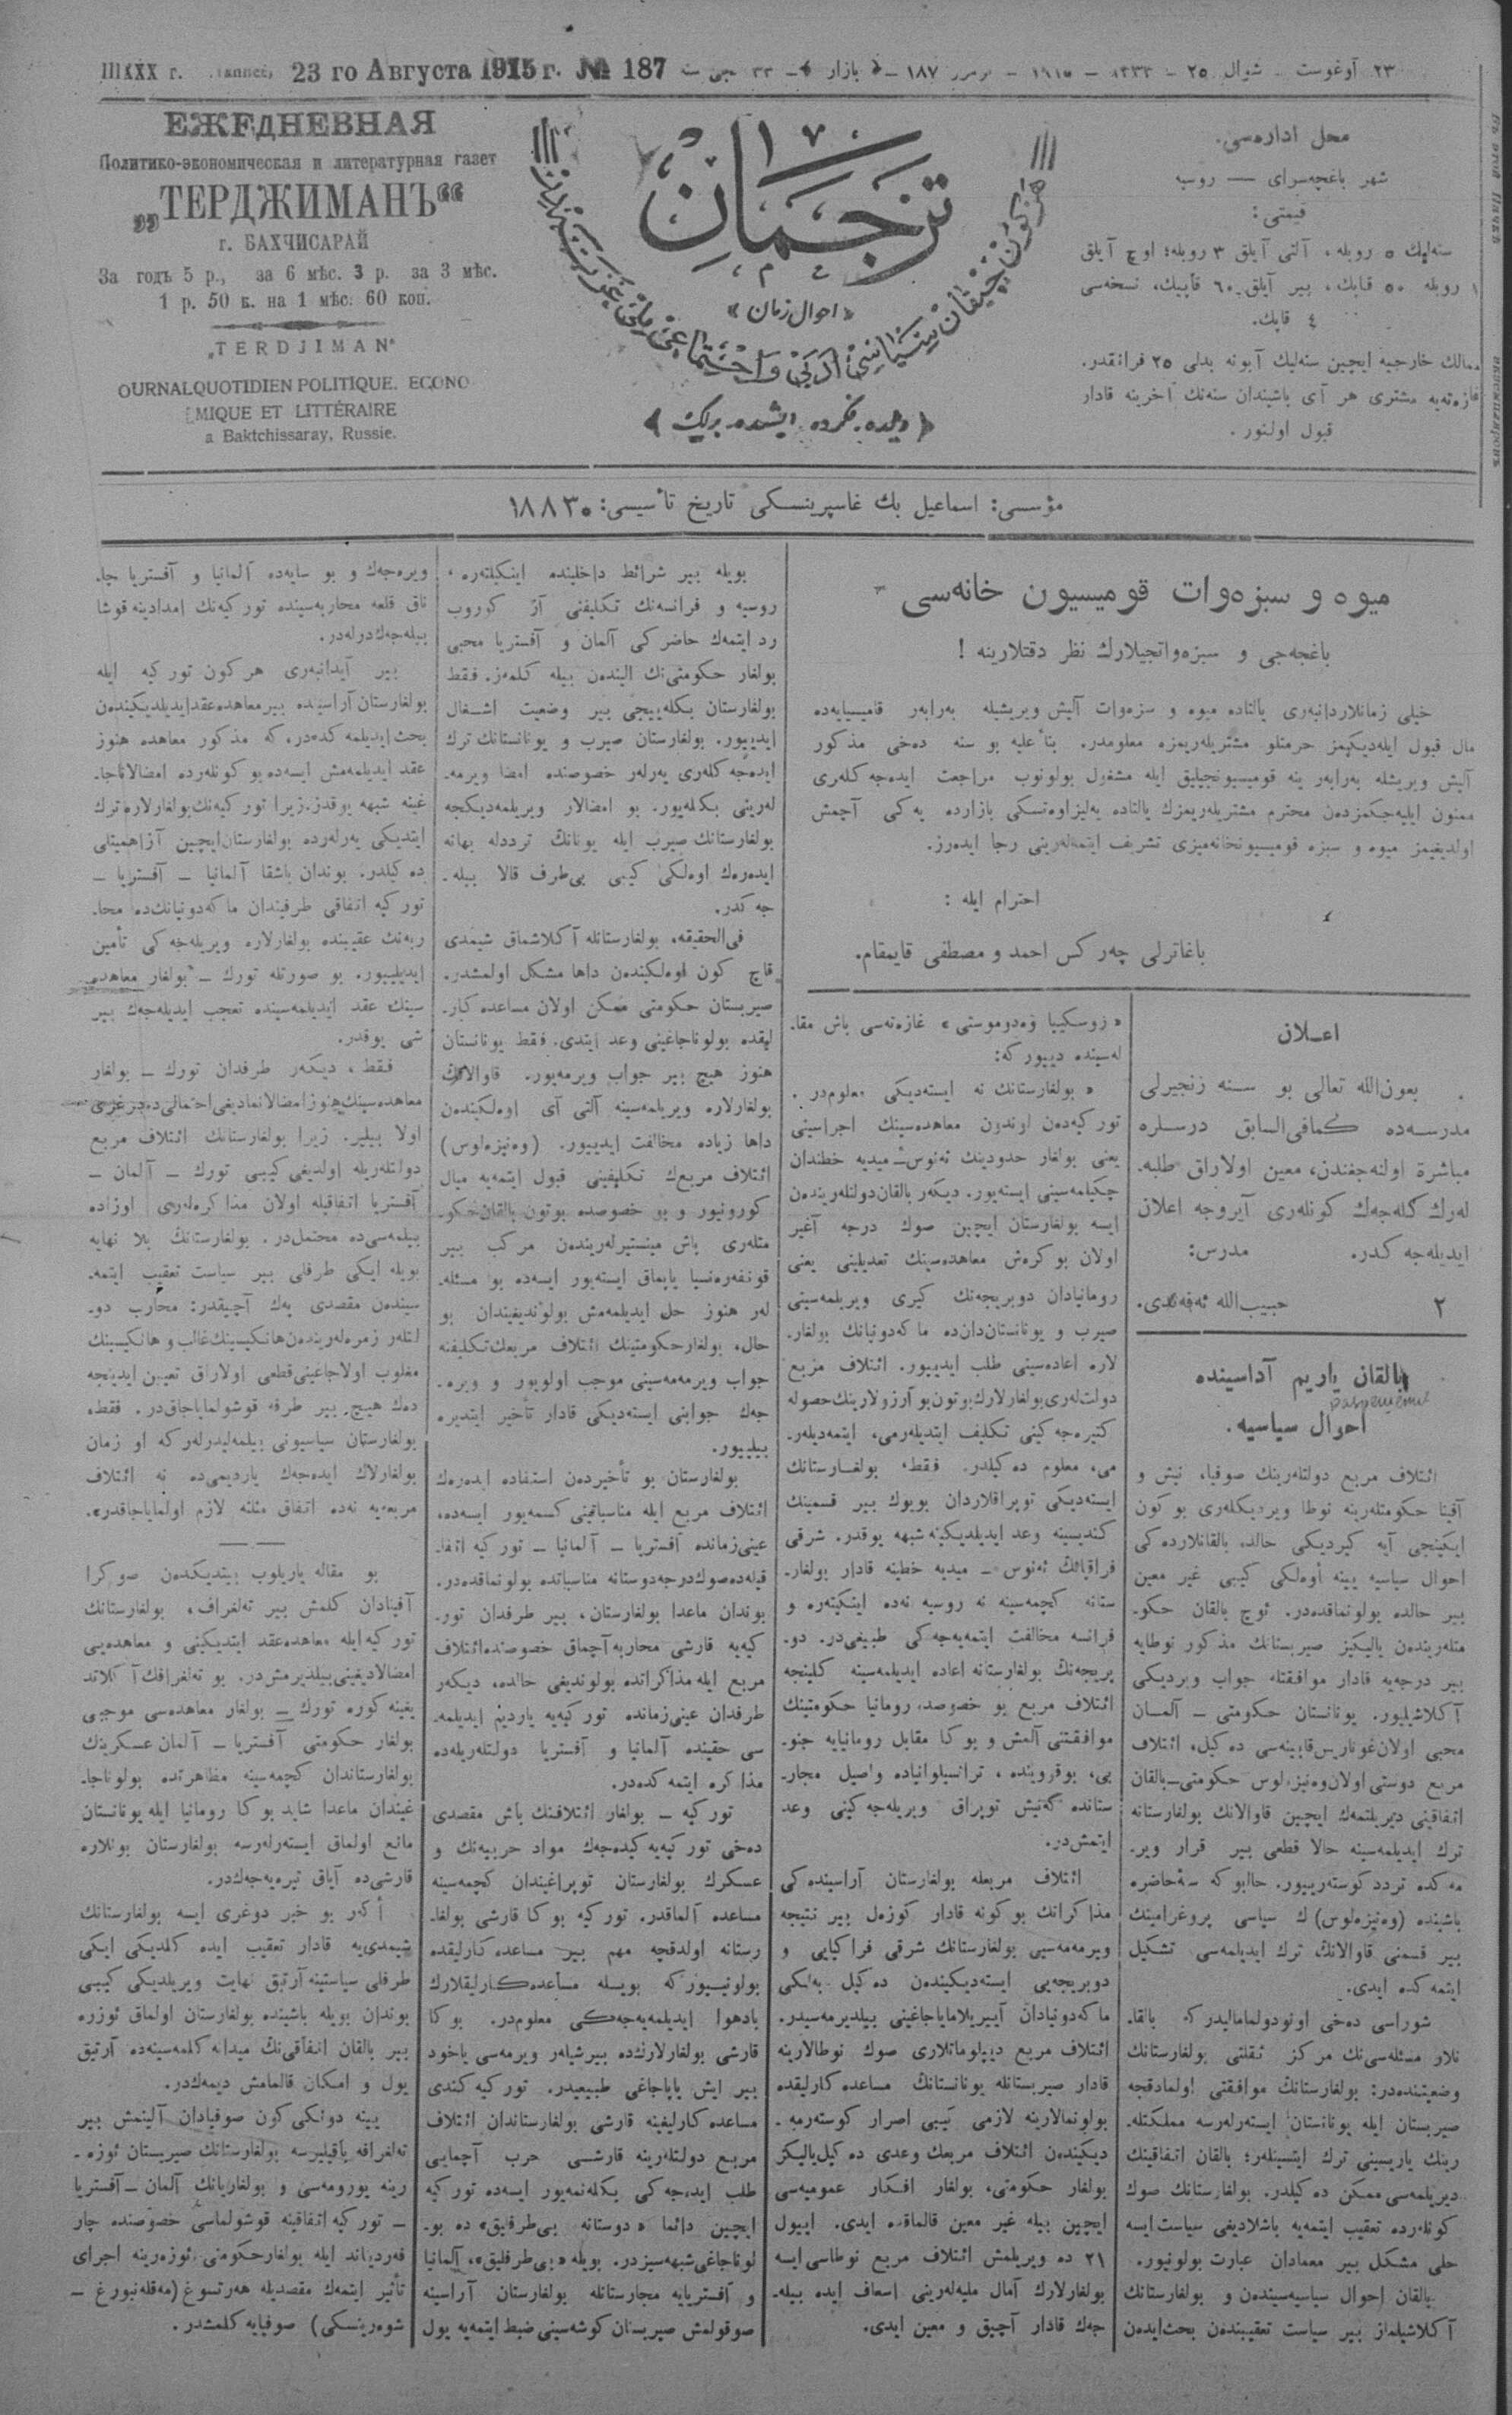 23 го Августа 1915 г. № 187
٢٣ آوغوست – شوال ٢٥ – ١٣٣٣ – ١٩١٥ – نومرو ١٨٧ – ﴿ بازار ﴾ – ٣٣ نجی سنه
ЕЖЕДНЕВНАЯ
Политико-экономическая и литературная газет
„ТЕРДЖИМАНЪ“
г. БАХЧИСАРАЙ
За годъ 5 р., за 6 мѣс. 3 р. за 3 мѣс.
1 р. 50 к. на 1 мѣс. 60 коп.
„TERDJIMAN“
OURNAL QUOTIDIEN POLITIQUE. ECONO
MIQUE ET LITTÉRAIRE
a Baktchissaray, Russie.
ترجمان
﴿ احوال زمان ﴾
﴿ دیلده، فکرده، ایشده بریك ﴾
محل اداره‌سی.
شهر باغچه‌سرای — روسیه
قیمتی:
سنه‌لیك ٥ روبله، آلتی آیلق ٣ روبله؛ اوچ آیلق
١ روبله ٥٠ قاپك، بیر آیلق ٦٠ قاپیك، نسخه‌سی
٤ قاپك.
ممالك خارجیه ایچین سنه‌لیك آبونه بدلی ٢٥ فرانقدر.
غازه‌ته‌یه مشتری هر آی باشیندان سنه‌نك آخرینه قادار
قبول اولنور.
مؤسسی: اسماعیل بك غاسپرینسکی تاریخ تأسیسی: ١٨٨٣
میوه و سبزه‌وات قومیسیون خانه‌سی
باغچه‌جی و سبزه‌واتجیلارك نظر دقتلارینه !
خیلی زمانلاردانبه‌ری یالتاده میوه و سبزه‌وات آلیش ویریشیله به‌رابه‌ر قامیسیایه‌ده
مال قبول ایله‌دیکیمز حرمتلو مشتریله‌ریمزه معلومدر. بناً علیه بو سنه ده‌خی مذکور
آلیش ویریشله به‌رابه‌ر ینه قومیسیونجیلیق ایله مشغول بولونوب مراجعت ایده‌جه‌کله‌ری
ممنون ایلیه‌جکمزده‌ن محترم مشتریله‌ریمزك یالتاده یه‌لیزاوه‌تسکی بازارده یه‌کی آچمش
اولدیغیمز میوه و سبزه قومیسیونخانه‌میزی تشریف ایتمه‌له‌رینی رجا ایده‌رز.
احترام ایله :
باغاترلی چه‌رکس احمد و مصطفی قایمقام.
اعلان
بعون‌الله تعالی بو سنه زنجیرلی
مدرسه‌ده کمافی‌السابق درسلره
مباشرة اولنه‌جغندن، معین اولاراق طلبه‌ـ
له‌رك گله‌جه‌ك کونله‌ری آیروجه اعلان
ایدیله‌جه‌کدر. مدرس:
٢ حبیب‌الله ئه‌فه‌ندی.
بالقان یاریم آداسینده
احوال سیاسیه.
ائتلاف مربع دولتله‌رینك صوفیا، نیش و
آفینا حکومتله‌رینه نوطا ویردیکله‌ری بو کون
ایکینجی آیه کیردیکی حالده بالقانلارده‌کی
احوال سیاسیه یینه اوه‌لکی کیبی غیر معین
بیر حالده بولونماقده‌در. ئوچ بالقان حکوـ
متله‌ریندن یالیکیز صیربستانك مذکور نوطایه
بیر درجه‌یه قادار موافقتله جواب ویردیکی
آکلاشیلیور. یونانستان حکومتی – آلمان
محبی اولان غوناریس قابینه‌سی ده‌کیل، ائتلاف
مربع دوستی اولان وه‌نیزه‌لوس حکومتی – بالقان
اتفاقینی دیریلتمه‌ك ایچین قاوالانك بولغارستانه
ترك ایدیلمه‌سینه حالا قطعی بیر قرار ویرـ
مه‌کده تردد کوسته‌رییور. حالبوکه سنهٔ حاضره
باشینده (وه‌نیزه‌لوس) ك سیاسی پروغرامینك
بیر قسمنی قاوالانك ترك ایدیلمه‌سی تشکیل
ایتمه‌کده ایدی.
شوراسی ده‌خی اونودولمامالیدر که بالقاـ
نلار مسئله‌سی‌نك مرکز ثقلتی بولغارستانك
وضعیتنده‌در: بولغارستانك موافقتی اولمادقجه
صیربستان ایله یونانستان ایسته‌رله‌رسه مملکتله‌ـ
رینك یاریسینی ترك ایتسینله‌ر؛ بالقان اتفاقینك
دیریلمه‌سی ممکن ده‌کیلدر. بولغارستانك صوك
کونله‌رده تعقیب ایتمه‌یه باشلادیغی سیاست ایسه
حلی مشکل بیر معمادان عبارت بولونیور.
بالقان احوال سیاسیه‌سیندن و بولغارستانك
آکلاشیلماز بیر سیاست تعقیبنده‌ن بحث ایده‌ن
« روسکییا وه‌دوموستی » غازه‌ته‌سی باش مقاـ
له‌سینده دییور که:
« بولغارستانك نه ایسته‌دیکی معلوم‌در.
تورکیه‌ده‌ن اوندون معاهده‌سینك اجراسینی
یعنی بولغار حدودینك ئه‌نوس – میدیه خطندان
چکیلمه‌سینی ایسته‌یور. دیکه‌ر بالقان دولتله‌ریندن
ایسه بولغارستان ایچین صوك درجه آغیر
اولان بوکره‌ش معاهده‌سینك تعدیلینی یعنی
رومانیادان دوبریجه‌نك کیری ویریلمه‌سینی
صیرب و یونانستان‌دان ده ماکه‌دونیانك بولغارـ
لاره اعاده‌سینی طلب ایدییور. ائتلاف مربع
دولتله‌ری بولغارلارك بوتون بو آرزولارینك حصوله
کتیره‌جه‌کینی تکلیف ایتدیله‌رمی، ایتمه‌دیله‌رـ
می، معلوم ده‌کیلدر. فقط، بولغارستانك
ایسته‌دیکی توپراقلاردان بویوك بیر قسمینك
کندیسینه وعد ایدیلدیکینه شبهه یوقدر. شرقی
فراقیانك ئه‌نوس – میدیه خطینه قادار بولغارـ
ستانه کچمه‌سینه نه روسیه نه‌ده اینکیلته‌ره و
فرانسه مخالفت ایتمه‌یه‌جه‌کی طبیعی‌در. دوـ
بریجه‌نك بولغارستانه اعاده ایدیلمه‌سینه کلینجه
ائتلاف مربع بو خصوصده رومانیا حکومتینك
موافقتنی آلمش و بوکا مقابل رومانیایه جنوـ
بی، بوقووینده، ترانسیلوانیاده واصیل مجارـ
ستانده که‌نیش توپراق ویریله‌جه‌کینی وعد
ایتمش‌در.
ائتلاف مربعله بولغارستان آراسینده‌کی
مذاکرانك بوکونه قادار کوزه‌ل بیر نتیجه
ویرمه‌مه‌سی بولغارستانك شرقی فراکیایی و
دوبریجه‌یی ایسته‌دیکیندن ده‌کیل به‌لکی
ماکه‌دونیادان آییریلامایاجاغینی بیلدیرمه‌سیدر.
ائتلاف مربع دیپلوماتلاری صوك نوطالارینه
قادار صیربستانله یونانستانك مساعده‌کارلیقده
بولونمالارینه لازمی کیبی اصرار کوسته‌رمه‌ـ
دیکیندن ائتلاف مربعك وعدی ده‌کیل یالیکز
بولغار حکومتی، بولغار افکار عمومیه‌سی
ایچین بیله غیر معین قالماقده ایدی. اییول
٢١ ده ویریلمش ائتلاف مربع نوطاسی ایسه
بولغارلارك آمال ملیه‌له‌رینی اسعاف ایده بیله‌ـ
جه‌ك قادار آچیق و معین ایدی.
بویله بیر شرائط داخلینده اینکیلته‌ره،
روسیه و فرانسه‌نك تکلیفنی آز کوروب
رد ایتمه‌ك حاضرکی آلمان و آفستریا محبی
بولغار حکومتی‌نك الیندن بیله کلمه‌ز. فقط
بولغارستان بکله‌ییجی بیر وضعیت اشغال
ایدییور. بولغارستان صیرب و یونانستانك ترك
ایده‌جه‌کله‌ری یه‌رله‌ر خصوصنده امضا ویرمه‌ـ
له‌رینی بکله‌یور. بو امضالار ویریلمه‌دیکجه
بولغارستانك صیرب ایله یونانك تردد‌له بهانه
ایده‌ره‌ك اوه‌لکی کیبی بی‌طرف قالا بیله‌ـ
جه‌کدر.
فی‌الحقیقه، بولغارستانله آکلاشماق شیمدی
قاچ کون اوه‌لکیندن داها مشکل اولمشدر.
صیربستان حکومتی ممکن اولان مساعده‌کارـ
لیقده بولوناجاغینی وعد ایتدی. فقط یونانستان
هنوز هیچ بیر جواب ویرمه‌یور. قاوالانك
بولغارلاره ویریلمه‌سینه آلتی آی اوه‌لکیندن
داها زیاده مخالفت ایدییور. (وه‌نیزه‌لوس)
ائتلاف مربعك تکلیفینی قبول ایتمه‌یه میال
کورونیور و بو خصوصده بوتون بالقان حکوـ
متله‌ری باش مینستیرله‌ریندن مرکب بیر
قونفه‌ره‌نسیا یاپماق ایسته‌یور ایسه‌ده بو مسئله‌ـ
له‌ر هنوز حل ایدیلمه‌مش بولوندیغیندان بو
حال، بولغار حکومتینك ائتلاف مربعك تکلیفنه
جواب ویرمه‌مه‌سینی موجب اولویور و ویره‌ـ
جه‌ك جوابنی ایسته‌دیکی قادار تأخیر ایتدیره
بیلییور.
بولغارستان بو تأخیرده‌ن استفاده ایده‌ره‌ك
ائتلاف مربع ایله مناسباتینی کسمه‌یور ایسه‌ده،
عینی زمانده آفستریا – آلمانیا – تورکیه اتفاـ
قیله‌ده صوك درجه دوستانه مناسباتده بولونماقده‌در.
بوندان ماعدا بولغارستان، بیر طرفدان تورـ
کیه‌یه قارشی محاربه آچماق خصوصنده ائتلاف
مربع ایله مذاکراتده بولوندیغی حالده، دیکه‌ر
طرفدان عینی زمانده تورکیه‌یه یاردیم ایدیلمه‌ـ
سی حقینده آلمانیا و آفستریا دولتله‌ریله‌ده
مذاکره ایتمه‌کده‌در.
تورکیه – بولغار ائتلافنك باش مقصدی
ده‌خی تورکیه‌یه کیده‌جه‌ك مواد حربیه‌نك و
عسکرك بولغارستان توپراغیندان کچمه‌سینه
مساعده آلماقدر. تورکیه بوکا قارشی بولغاـ
رستانه اولدقچه مهم بیر مساعده‌کارلیقده
بولونیور که بویله مساعده‌کارلیقلارك
بادهوا ایدیلمه‌یه‌جه‌کی معلوم‌در. بوکا
قارشی بولغارلارك‌ده بیر شیله‌ر ویرمه‌سی یاخود
بیر ایش یاپاجاغی طبیعیدر. تورکیه کندی
مساعده‌کارلیغینه قارشی بولغارستاندان ائتلاف
مربع دولتله‌رینه قارشی حرب آچمایی
طلب ایده‌جه‌کی بکله‌نمه‌یور ایسه‌ده تورکیه
ایچین دائما « دوستانه بی‌طرفلیق » ده بوـ
لوناجاغی شبهه‌سیزدر. بویله « بی‌طرفلیق »، آلمانیا
و آفستریایه مجارستانله بولغارستان آراسینه
صوقولمش صیربستان کوشه‌سینی ضبط ایتمه‌یه یول
ویره‌جه‌ك و بو سایه‌ده آلمانیا و آفستریا چاـ
ناق قلعه محاربه‌سینده تورکیه‌نك امدادینه قوشا
بیله‌جه‌کدرله‌ر.
بیر آیدانبه‌ری هر کون تورکیه ایله
بولغارستان آراسینده بیر معاهده عقد ایدیلدیکینده‌ن
بحث ایدیلمه‌کده‌در، که مذکور معاهده هنوز
عقد ایدیلمه‌مش ایسه‌ده بو کونله‌رده امضالاناجاـ
غینه شبهه یوقدر. زیرا تورکیه‌نك بولغارلاره ترك
ایتدیکی یه‌رله‌رده بولغارستان ایچین آز اهمیتلی
ده‌کیلدر. بوندان باشقا آلمانیا – آفستریا –
تورکیه اتفاقی طرفیندان ماکه‌دونیانك‌ده محاـ
ربه‌نك عقیبنده بولغارلاره ویریله‌جه‌کی تأمین
ایدیلییور. بو صورتله تورك – بولغار معاهده‌ـ
سینك عقد ایدیلمه‌سینده تعجب ایدیله‌جه‌ك بیر
شی یوقدر.
فقط، دیکه‌ر طرفدان تورك – بولغار
معاهده‌سینك هنوز امضالانمادیغی احتمالی ده دوغری
اولا بیلیر. زیرا بولغارستانك ائتلاف مربع
دولتله‌ریله اولدیغی کیبی تورك – آلمان –
آفستریا اتفاقیله اولان مذاکره‌له‌ری اوزاده
بیلمه‌سی‌ده محتمل‌در. بولغارستانك بلا نهایه
بویله ایکی طرفلی بیر سیاست تعقیب ایتمه‌ـ
سیندن مقصدی یه‌ك آچیقدر: محارب دوـ
لتله‌ر زمره‌له‌ریندن هانکیسینك غالب و هانکیسینك
مغلوب اولاجاغینی قطعی اولاراق تعیین ایدینجه
ده‌ك هیچ بیر طرفه قوشولمایاجاق‌در. فقط،
بولغارستان سیاسیونی بیلمه‌لیدرله‌ر که او زمان
بولغارلاك ایده‌جه‌ك یاردیمی‌ده نه ائتلاف
مربعه‌یه نه‌ده اتفاق مثلثه لازم اولمایاجاقدر».
بو مقاله یازیلوب بیتدیکده‌ن صوکرا
آفینادان کلمش بیر ته‌لغراف، بولغارستانك
تورکیه ایله معاهده عقد ایتدیکینی و معاهده‌یی
امضالادیغینی بیلدیرمش‌در. بو ته‌لغرافك آکلاتدـ
یغینه کوره تورك – بولغار معاهده‌سی موجبی
بولغار حکومتی آفستریا – آلمان عسکرینك
بولغارستاندان کچمه‌سینه مظاهرتده بولوناجاـ
غیندان ماعدا شاید بوکا رومانیا ایله یونانستان
مانع اولماق ایسته‌رله‌رسه بولغارستان بونلاره
قارشی‌ده آیاق تیره‌یه‌جه‌ك‌در.
أکه‌ر بو خبر دوغری ایسه بولغارستانك
شیمدی‌یه قادار تعقیب ایده کلدیکی ایکی
طرفلی سیاستینه آرتیق نهایت ویریلدیکی کیبی
بوندان بویله باشینده بولغارستان اولماق ئوزره
بیر بالقان اتفاقی‌نك میدانه کلمه‌سینه‌ده آرتیق
یول و امکان قالمامش دیمه‌ك‌در.
یینه دونکی کون صوفیادان آلینمش بیر
ته‌لغرافه باقیلیرسه بولغارستانك صیربستان ئوزه‌ـ
رینه یورومه‌سی و بولغاریانك آلمان – آفستریا
– تورکیه اتفاقینه قوشولماسی خصوصنده چار
فه‌ردیناند ایله بولغار حکومتی ئوزه‌رینه اجرای
تأثیر ایتمه‌ك مقصدیله هه‌رتسوغ (مه‌قله‌نبورغ –
شوه‌رینسکی) صوفیایه کلمشدر.